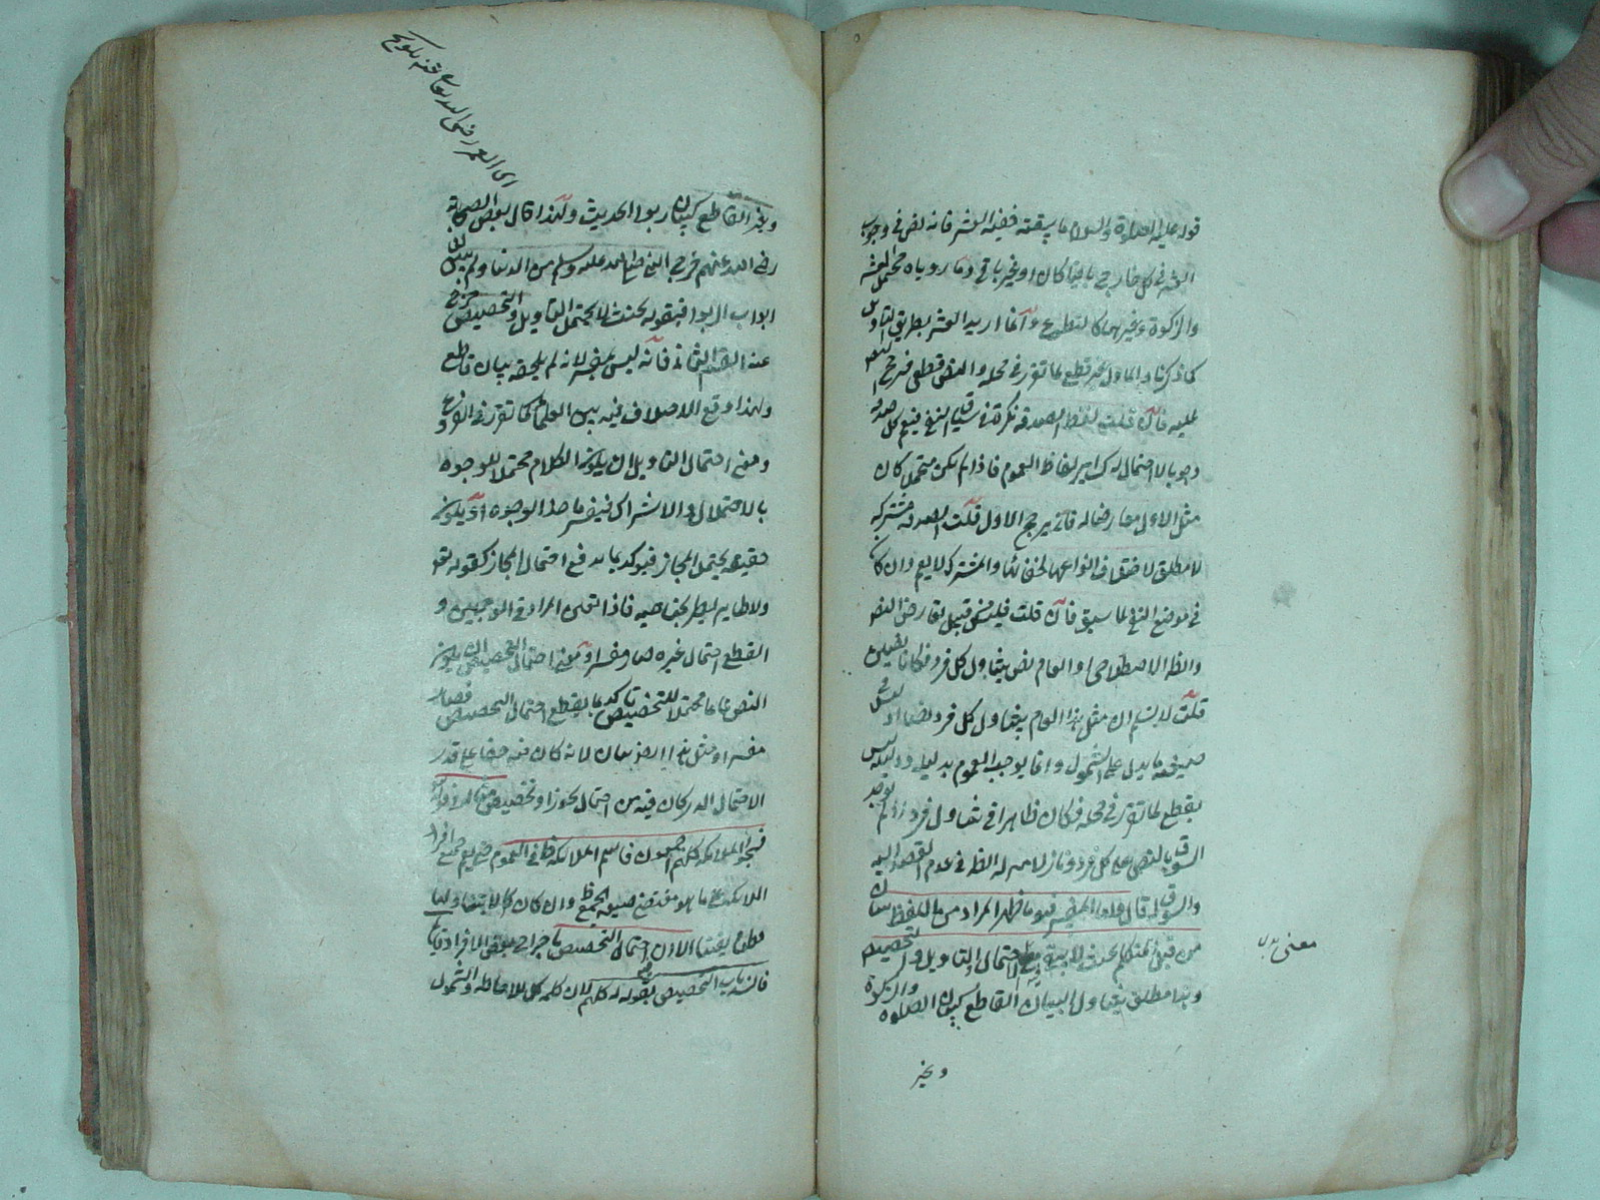 قوله عليه الصلاة والسلام ما سقته ففيه العشر فانه نص في وجوب
العشر في كل خارج باقيا كان او غير باق وما روياه محتمل للعشر
والزكوة وغيرهما كالتطوع وانما اريد العشر بطريق التاويل
كما ذكرنا والماول غير قطعي لما تقرر في محله والنص قطعي فرجح النص
عليه فان قلت لفظ الصدقة نكرة في سياق النفي فيعم كل صدقة
وجوبا لا احتمال له كسائر الفاظ العموم فاذا لم يكن محتملا كان
مثل الاول معارضا له فانى يرجح الاول قلت الصدقة مشتركة
لا مطلق لاختلاف انواعها والمشترك لا يعم وان كان
في موضع النفي لما سبق فان قلت قبيل تعارض النص
والظاهر الاصطلاحي والعام نص يتناول كل فرد فكانا نصين
قلت لا نسلم ان مثل هذا العام يتناول كل فرد نصا اذ ليس في
صيغته ما يدل على الشمول وانما يوجب العموم بدليل ودليله ليس
بقطعي لما تقرر في محله فكان ظاهرا في تناول فرد اذ لم يوجد
السوق بالنص على كل فرد ونازلا منزلة الظاهر في عدم القصد اليه
والسوق له قال واما المفسر فهو ما ظهر المراد من اللفظ ببيان
من قبل المتكلم بحيث لا يبقى معه احتمال التاويل والتخصيص
وهذا مطلق يتناول البيان القاطع كبيان الصلاة والزكوة
معنى بدل
وغير
اى العمر رضى الله تعالى عنه تلويح
وغير القاطع كبيان ربوا الحديث ولهذا قال بعض الصحابة
رضى الله عنهم خرج النبي صلى الله عليه وسلم من الدنيا ولم يبين لنا
ابواب الربوا فبقوله بحيث لا يحتمل التاويل والتخصيص خرج
عنه القسم الثاني فانه ليس بمفسر لانه لم يلحقه بيان قاطع
ولهذا وقع الاختلاف فيه بين العلماء كما تقرر في الفروع
ومعنى احتمال التاويل ان يكون الكلام محتملا للوجوه
بالاحتمال والاشتراك فيفسر باحد الوجوه او يكون
حقيقة يحتمل المجاز فيؤكد بما يدفع احتمال المجاز كقوله تعالى
ولا طاير يطير بجناحيه فاذا المراد في الوجهين و
انقطع احتمال غيره صار مفسرا ومعنى احتمال التخصيص ان يكون
النص عاما محتملا للتخصيص تأكد بما يقطع احتمال التخصيص فصار
مفسرا ومثل هذا ايضا بيان لانه كان فيه خفاء على قدر
الاحتمال الذي كان فيه من احتمال تجوز او تخصيص مثاله قوله تعالى
فسجد الملائكة كلهم اجمعون فاسم الملائكة ظاهر في العموم حتى يعم جميع افراد
الملائكة على ما هو مقتضى صيغة الجمع وان كان
قطعا يقينا الا ان احتمال التخصيص باخراج بعض الافراد قائم
فانسد باب التخصيص بقوله كلهم لان كلمة كل للاحاطة والشمول